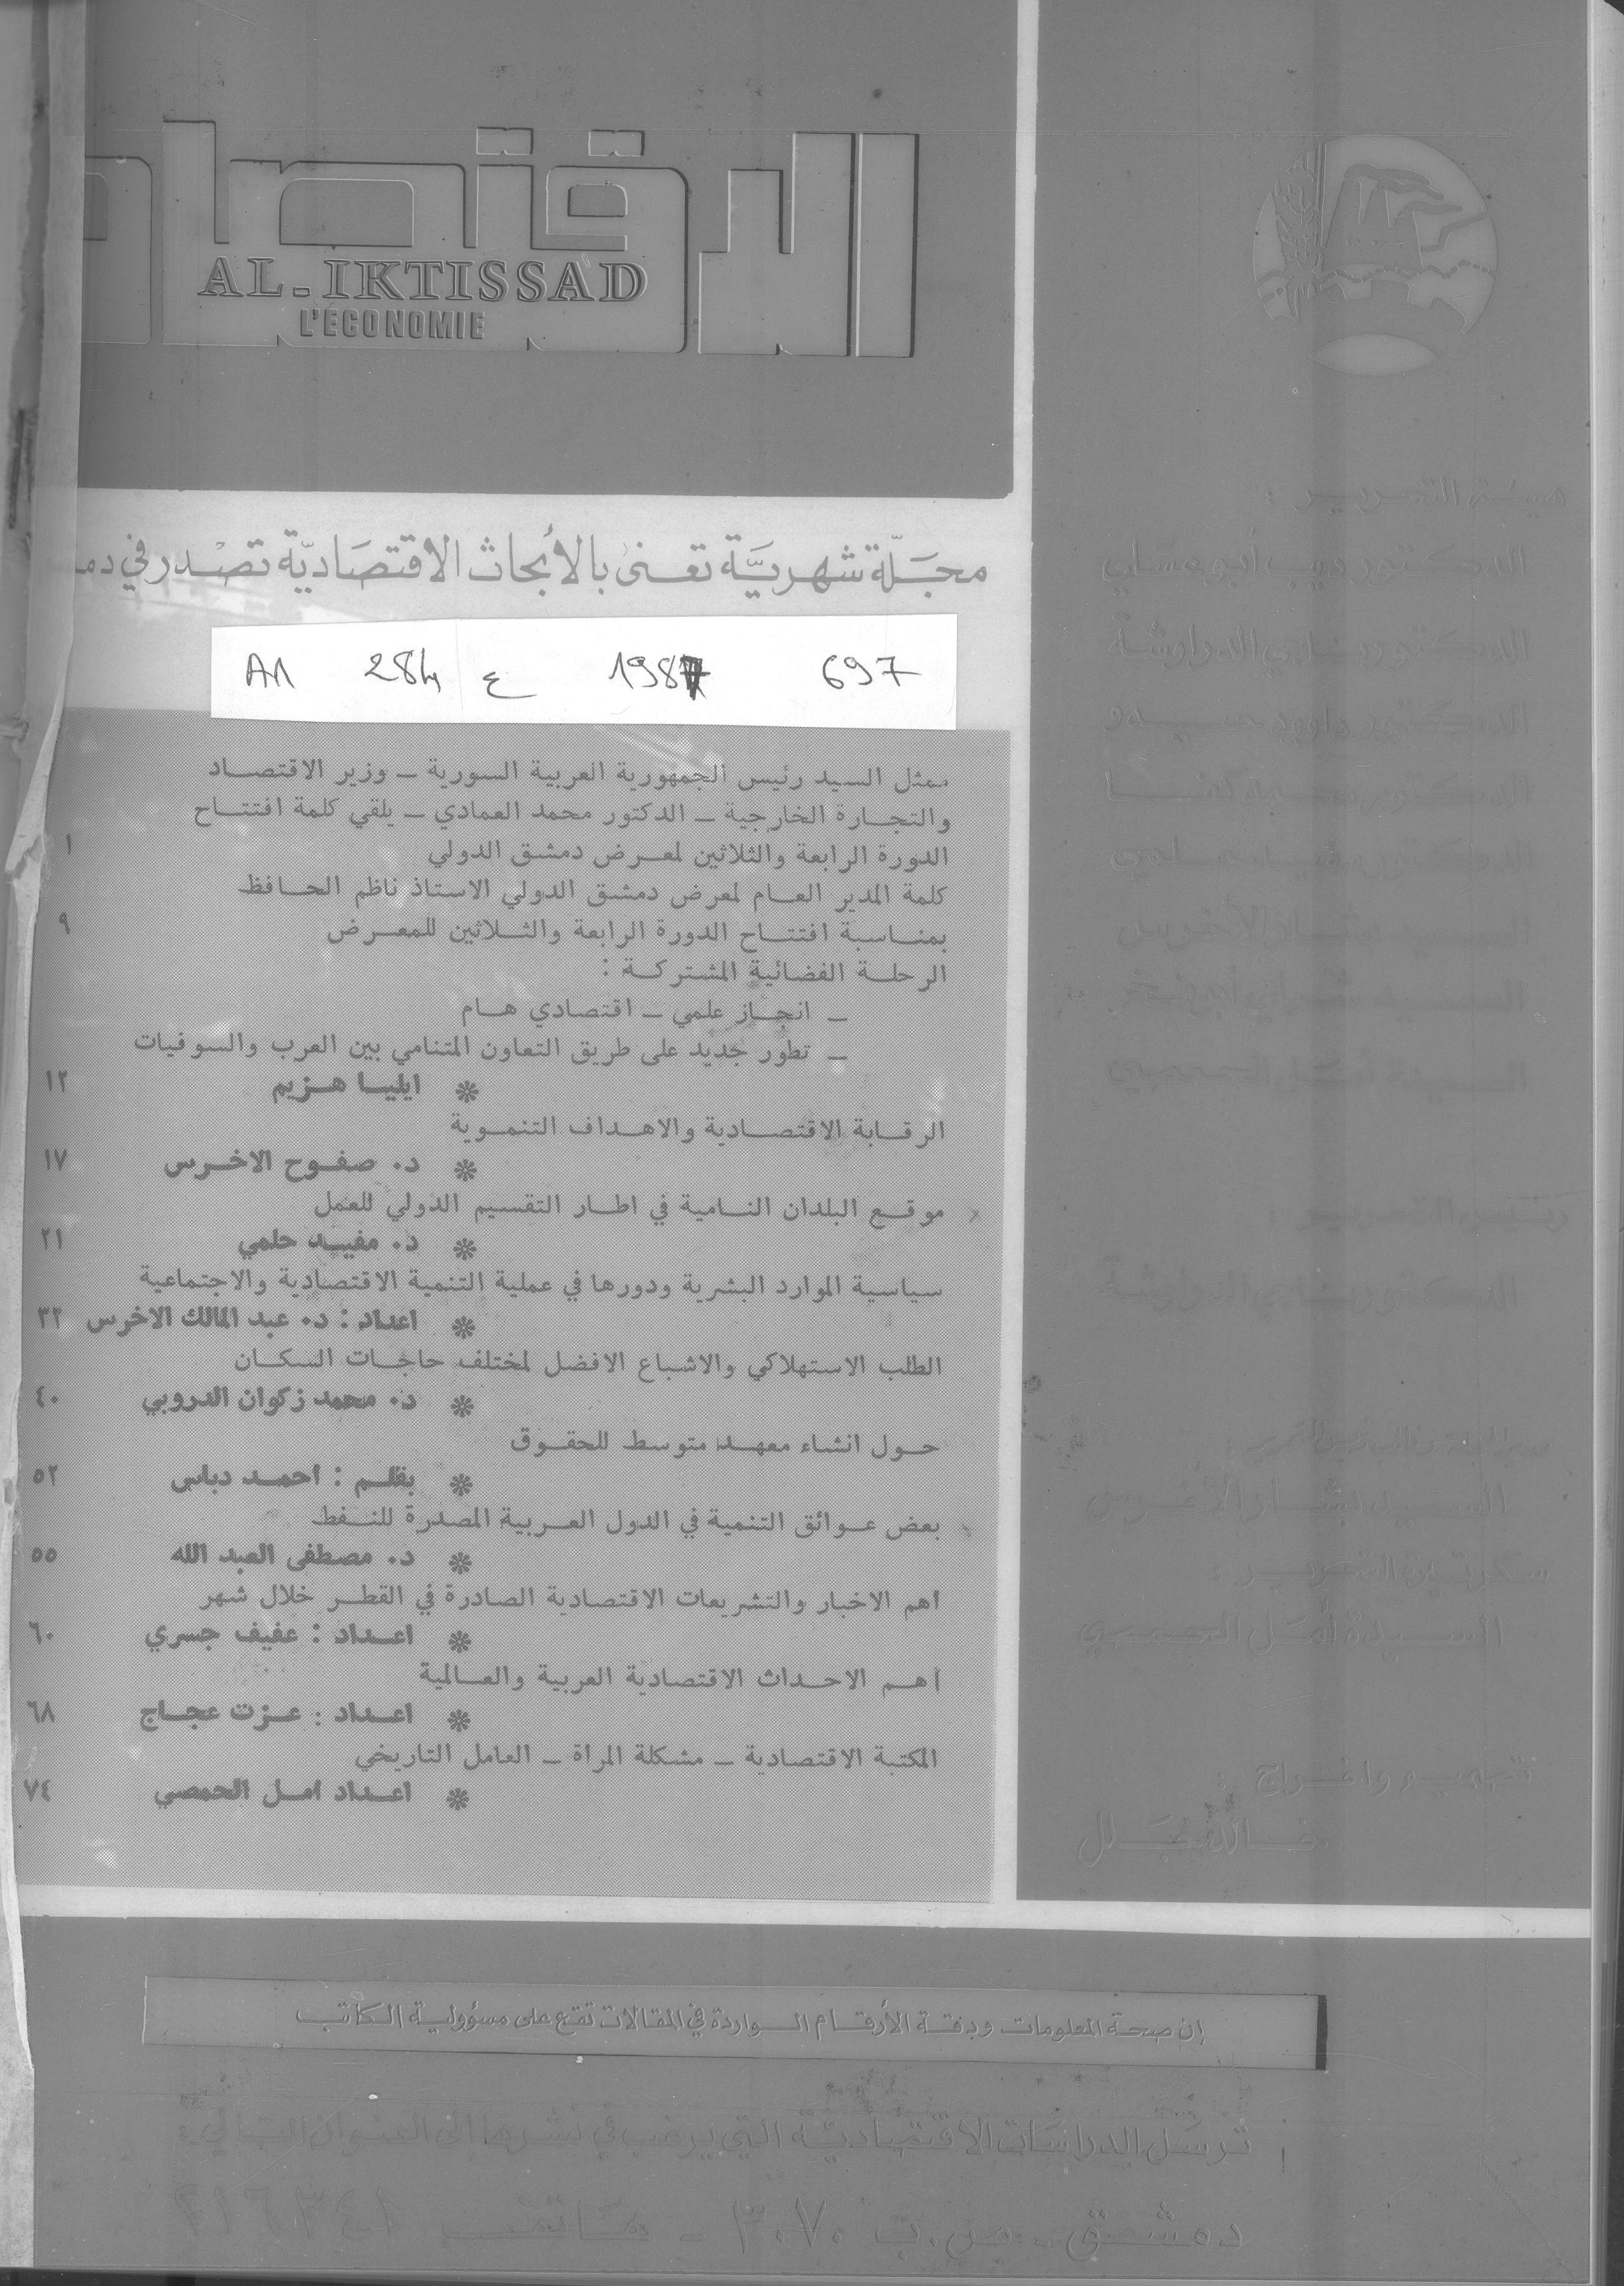 الاقتصاد
AL-IKTISSAD
L'ÉCONOMIE
مجلة شهرية تعنى بالأبحاث الاقتصادية تصدر في دمـ
A1 284 ع 1987 697
ممثل السيد رئيس الجمهورية العربية السورية ــ وزير الاقتصاد
والتجارة الخارجية ــ الدكتور محمد العمادي ــ يلقي كلمة افتتاح
الدورة الرابعة والثلاثين لمعرض دمشق الدولي ١
كلمة المدير العام لمعرض دمشق الدولي الاستاذ ناظم الحافظ
بمناسبة افتتاح الدورة الرابعة والثلاثين للمعرض ٩
الرحلة الفضائية المشتركة :
ــ انجاز علمي ــ اقتصادي هام
ــ تطور جديد على طريق التعاون المتنامي بين العرب والسوفيات
❋ ايليا هزيم ١٢
الرقابة الاقتصادية والاهداف التنموية
❋ د. صفوح الاخرس ١٧
موقع البلدان النامية في اطار التقسيم الدولي للعمل
❋ د. مفيد حلمي ٢١
سياسية الموارد البشرية ودورها في عملية التنمية الاقتصادية والاجتماعية
❋ اعداد : د. عبد المالك الاخرس ٣٢
الطلب الاستهلاكي والاشباع الافضل لمختلف حاجات السكان
❋ د. محمد زكوان الدروبي ٤٠
حول انشاء معهد متوسط للحقوق
❋ بقلم : احمد دباس ٥٢
بعض عوائق التنمية في الدول العربية المصدرة للنفط
❋ د. مصطفى العبد الله ٥٥
اهم الاخبار والتشريعات الاقتصادية الصادرة في القطر خلال شهر
❋ اعداد : عفيف جسري ٦٠
اهم الاحداث الاقتصادية العربية والعالمية
❋ اعداد : عزت عجاج ٦٨
المكتبة الاقتصادية ــ مشكلة المراة ــ العامل التاريخي
❋ اعداد امل الحمصي ٧٤
هيئة التحرير :
الدكتور ديب أبو عسلي
الدكتور ناجي الدراوشة
الدكتور داوود حيدو
السيد بشار الأخرس
السيدة أمل الحمصي
رئيس التحرير :
الدكتور ناجي الدراوشة
السيد بشار الأخرس
سكرتيرة التحرير :
السيدة أمل الحمصي
تصميم واخراج
خالد جلل
إن صحة المعلومات ودقة الأرقام الواردة في المقالات تقع على مسؤولية الكاتب
ترسل الدراسات الاقتصادية التي يرغب في نشرها الى العنوان التالي :
دمشق - ص.ب ٣٠٧٠ - هاتف